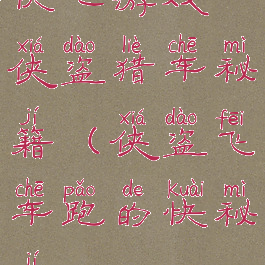 xiá dào liè chē mì
侠盗猎车秘
jí xiá dào fēi
籍（侠盗飞
chē pǎo de kuài mì
车跑的快秘
jí